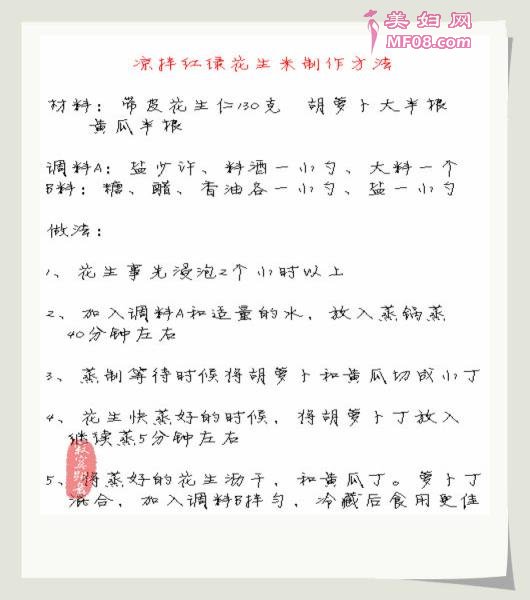 美妇网
MF08.com
凉拌红绿花生米制作方法
材料：带皮花生仁130克 胡萝卜大半根
黄瓜半根
调料A：盐少许、料酒一小勺、大料一个
B料：糖、醋、香油各一小勺、盐一小勺
做法：
1、花生事先浸泡2个小时以上
2、加入调料A和适量的水，放入蒸锅蒸
40分钟左右
3、蒸制等待时候将胡萝卜和黄瓜切成小丁
4、花生快蒸好的时候，将胡萝卜丁放入
继续蒸5分钟左右
5、将蒸好的花生沥干，和黄瓜丁。萝卜丁
混合，加入调料B拌匀，冷藏后食用更佳